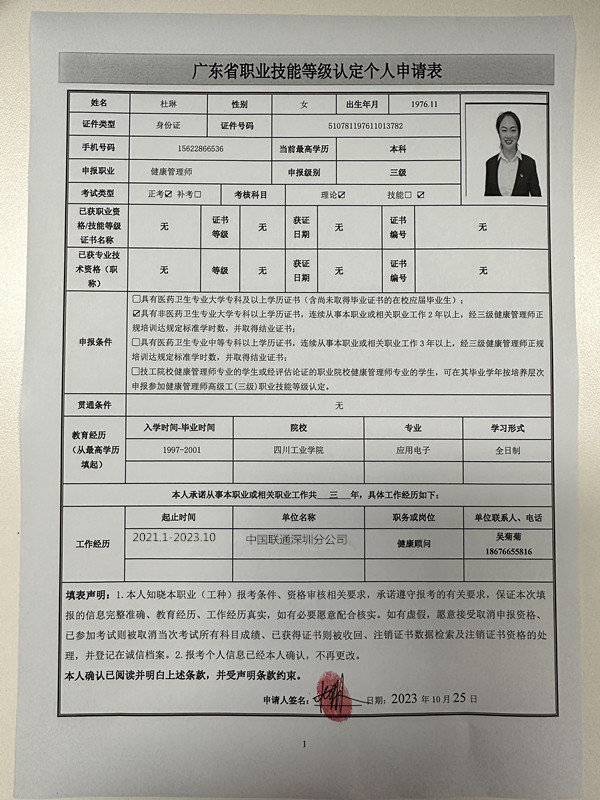 广东省职业技能等级认定个人申请表
姓名 杜琳 性别 女 出生年月 1976.11
证件类型 身份证 证件号码 510781197611013782
手机号码 15622866536 当前最高学历 本科
申报职业 健康管理师 申报级别 三级
考试类型 正考☑ 补考☐ 考核科目 理论☑ 技能☐ ☑
已获职业资
格/技能等级
证书名称
无
证书
等级
无
获证
日期
无
证书
编号
无
已获专业技
术资格（职
称）
无
等级
无
获证
日期
无
证书
编号
无
申报条件
☐具有医药卫生专业大学专科及以上学历证书（含尚未取得毕业证书的在校应届毕业生）；
☑具有非医药卫生专业大学专科以上学历证书，连续从事本职业或相关职业工作 2 年以上，经三级健康管理师正
规培训达规定标准学时数，并取得结业证书；
☐具有医药卫生专业中等专科以上学历证书，连续从事本职业或相关职业工作 3 年以上，经三级健康管理师正规
培训达规定标准学时数，并取得结业证书；
☐技工院校健康管理师专业的学生或经评估论证的职业院校健康管理师专业的学生，可在其毕业学年按培养层次
申报参加健康管理师高级工(三级)职业技能等级认定。
贯通条件 无
教育经历
（从最高学历
填起）
入学时间-毕业时间 院校 专业 学习形式
1997-2001 四川工业学院 应用电子 全日制
本人承诺从事本职业或相关职业工作共 三 年，具体工作经历如下：
工作经历
起止时间 单位名称 职务或岗位 单位联系人、电话
2021.1-2023.10 中国联通深圳分公司 健康顾问 吴菊菊
18676655816
填表声明：1.本人知晓本职业（工种）报考条件、资格审核相关要求，承诺遵守报考的有关要求，保证本次填
报的信息完整准确、教育经历、工作经历真实，如有必要愿意配合核实。如有虚假，愿意接受取消申报资格、
已参加考试则被取消当次考试所有科目成绩、已获得证书则被收回、注销证书数据检索及注销证书资格的处
理，并登记在诚信档案。2.报考个人信息已经本人确认，不再更改。
本人确认已阅读并明白上述条款，并受声明条款约束。
申请人签名： 日期：2023 年 10 月 25 日
1